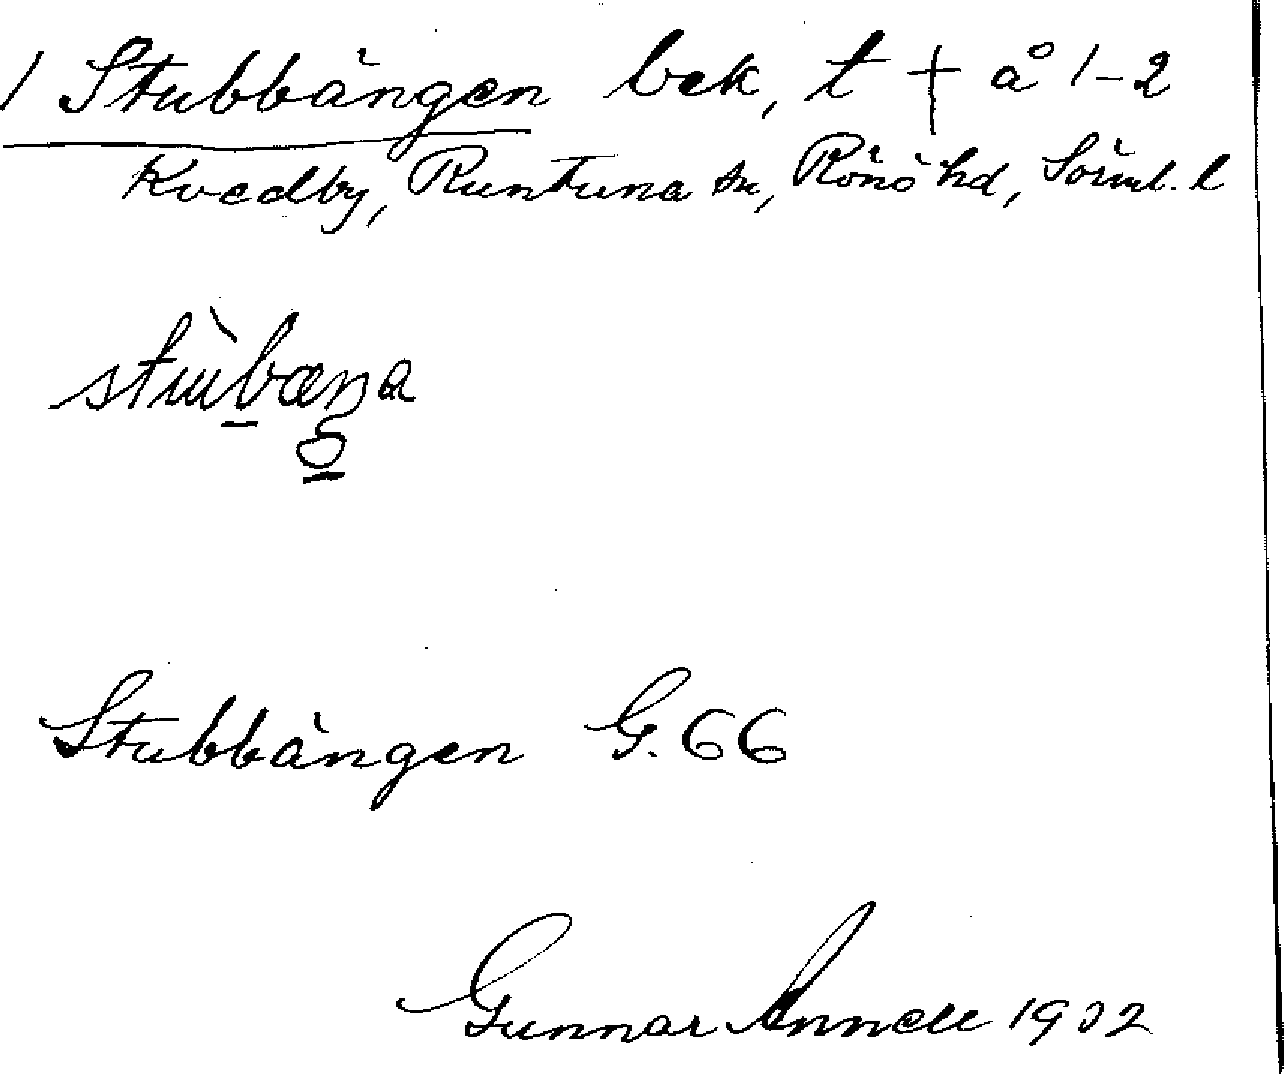 1 Stubbängen bek, t + å 1-2
Kvedby, Runtuna sn, Rönö hd, Söml. l
Stubbängen G. 66
Gunnar Annell 1932